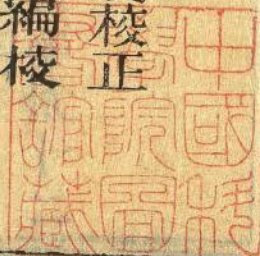 校正
編校
中國科
學院圖
書館藏